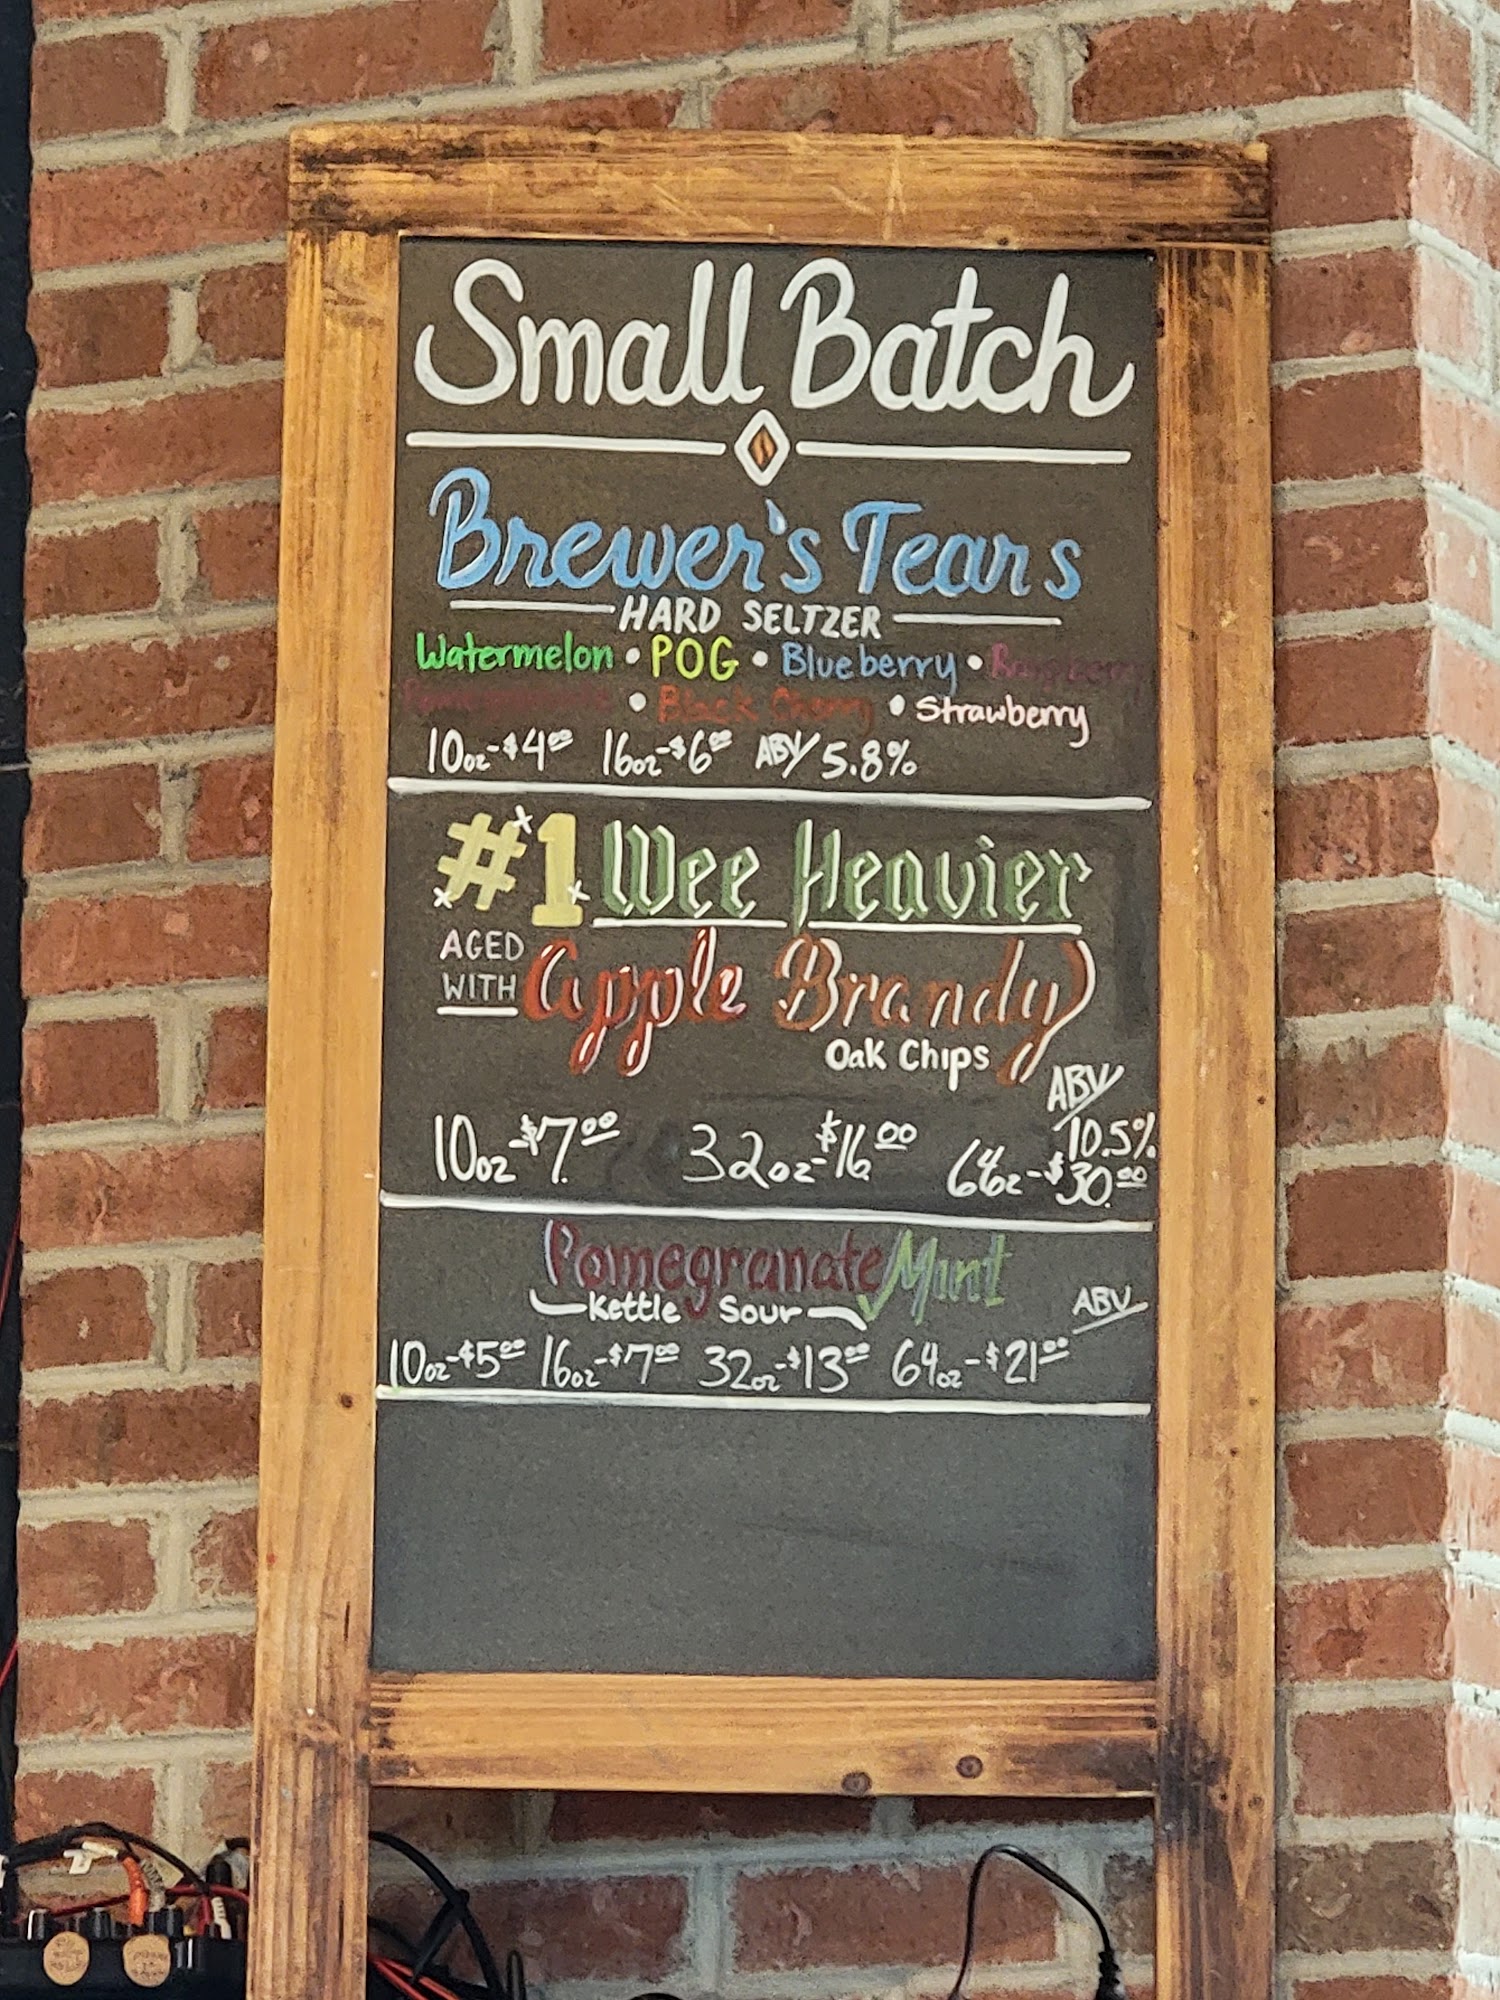 Small Batch
Brewer's Tears
HARD SELTZER
Watermelon • POG • Blueberry • Raspberry
Pomegranate • Black Cherry • Strawberry
10oz-$4.00 16oz-$6.00 ABV/5.8%
#1 Wee Heavier
AGED WITH Apple Brandy
Oak Chips
ABV/10.5%
10oz-$7.00 32oz-$16.00 64oz-$30.00
Pomegranate Mint
Kettle Sour
ABV
10oz-$5.00 16oz-$7.00 32oz-$13.00 64oz-$21.00